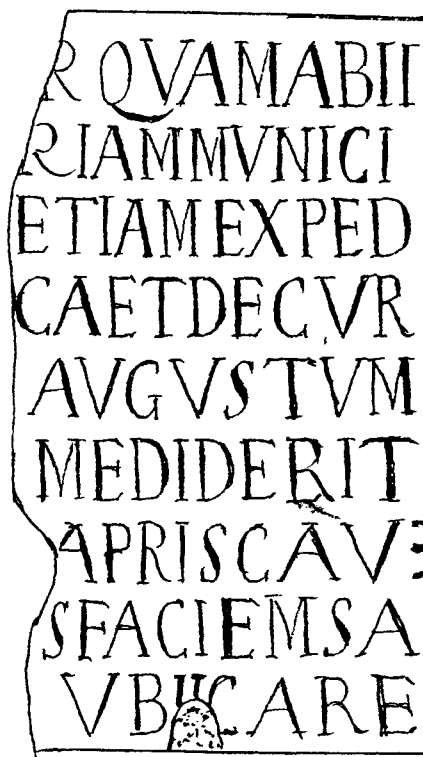 R QVAMABII
RIAMMVNICI
ETIAMEXPED
CAETDECVR
AVGVSTVM
MEDIDERIT
APRISCAV
SFACIEMSA
VBLICARE